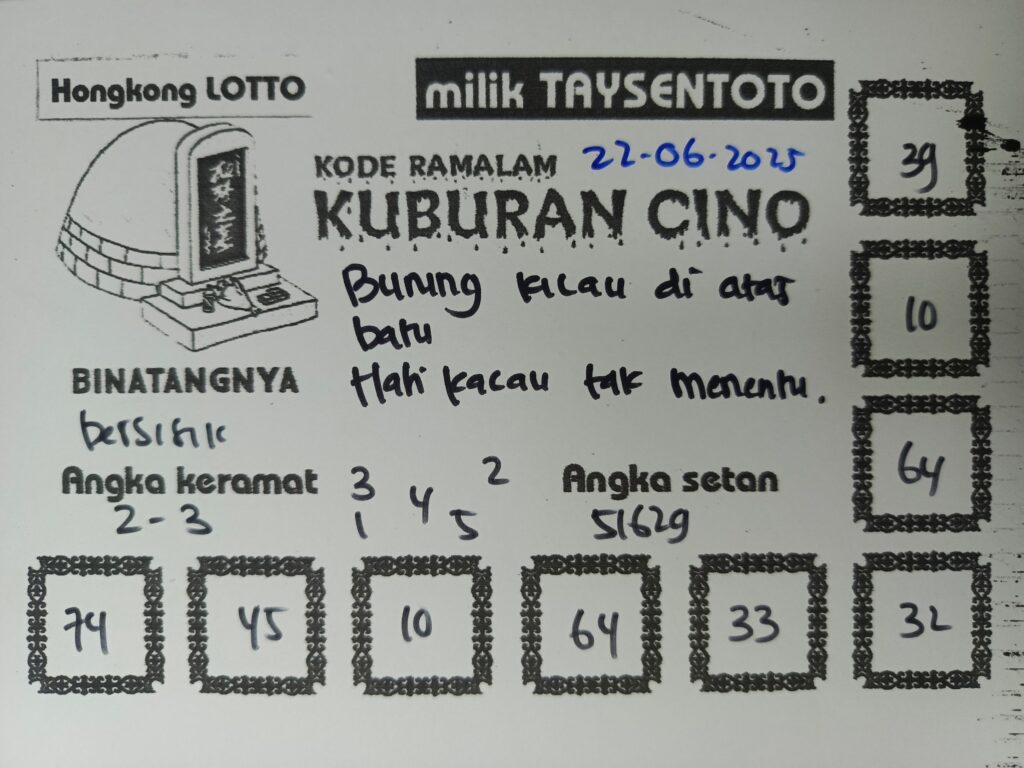 Hongkong LOTTO
milik TAYSENTOTO
KODE RAMALAM 22-06-2025
KUBURAN CINO
Burung kacau di atas
batu
Hati kacau tak menentu.
BINATANGNYA
bersisik
Angka keramat
2-3
3 4 2
1 5
Angka setan
51629
39
10
64
74 45 10 64 33 32